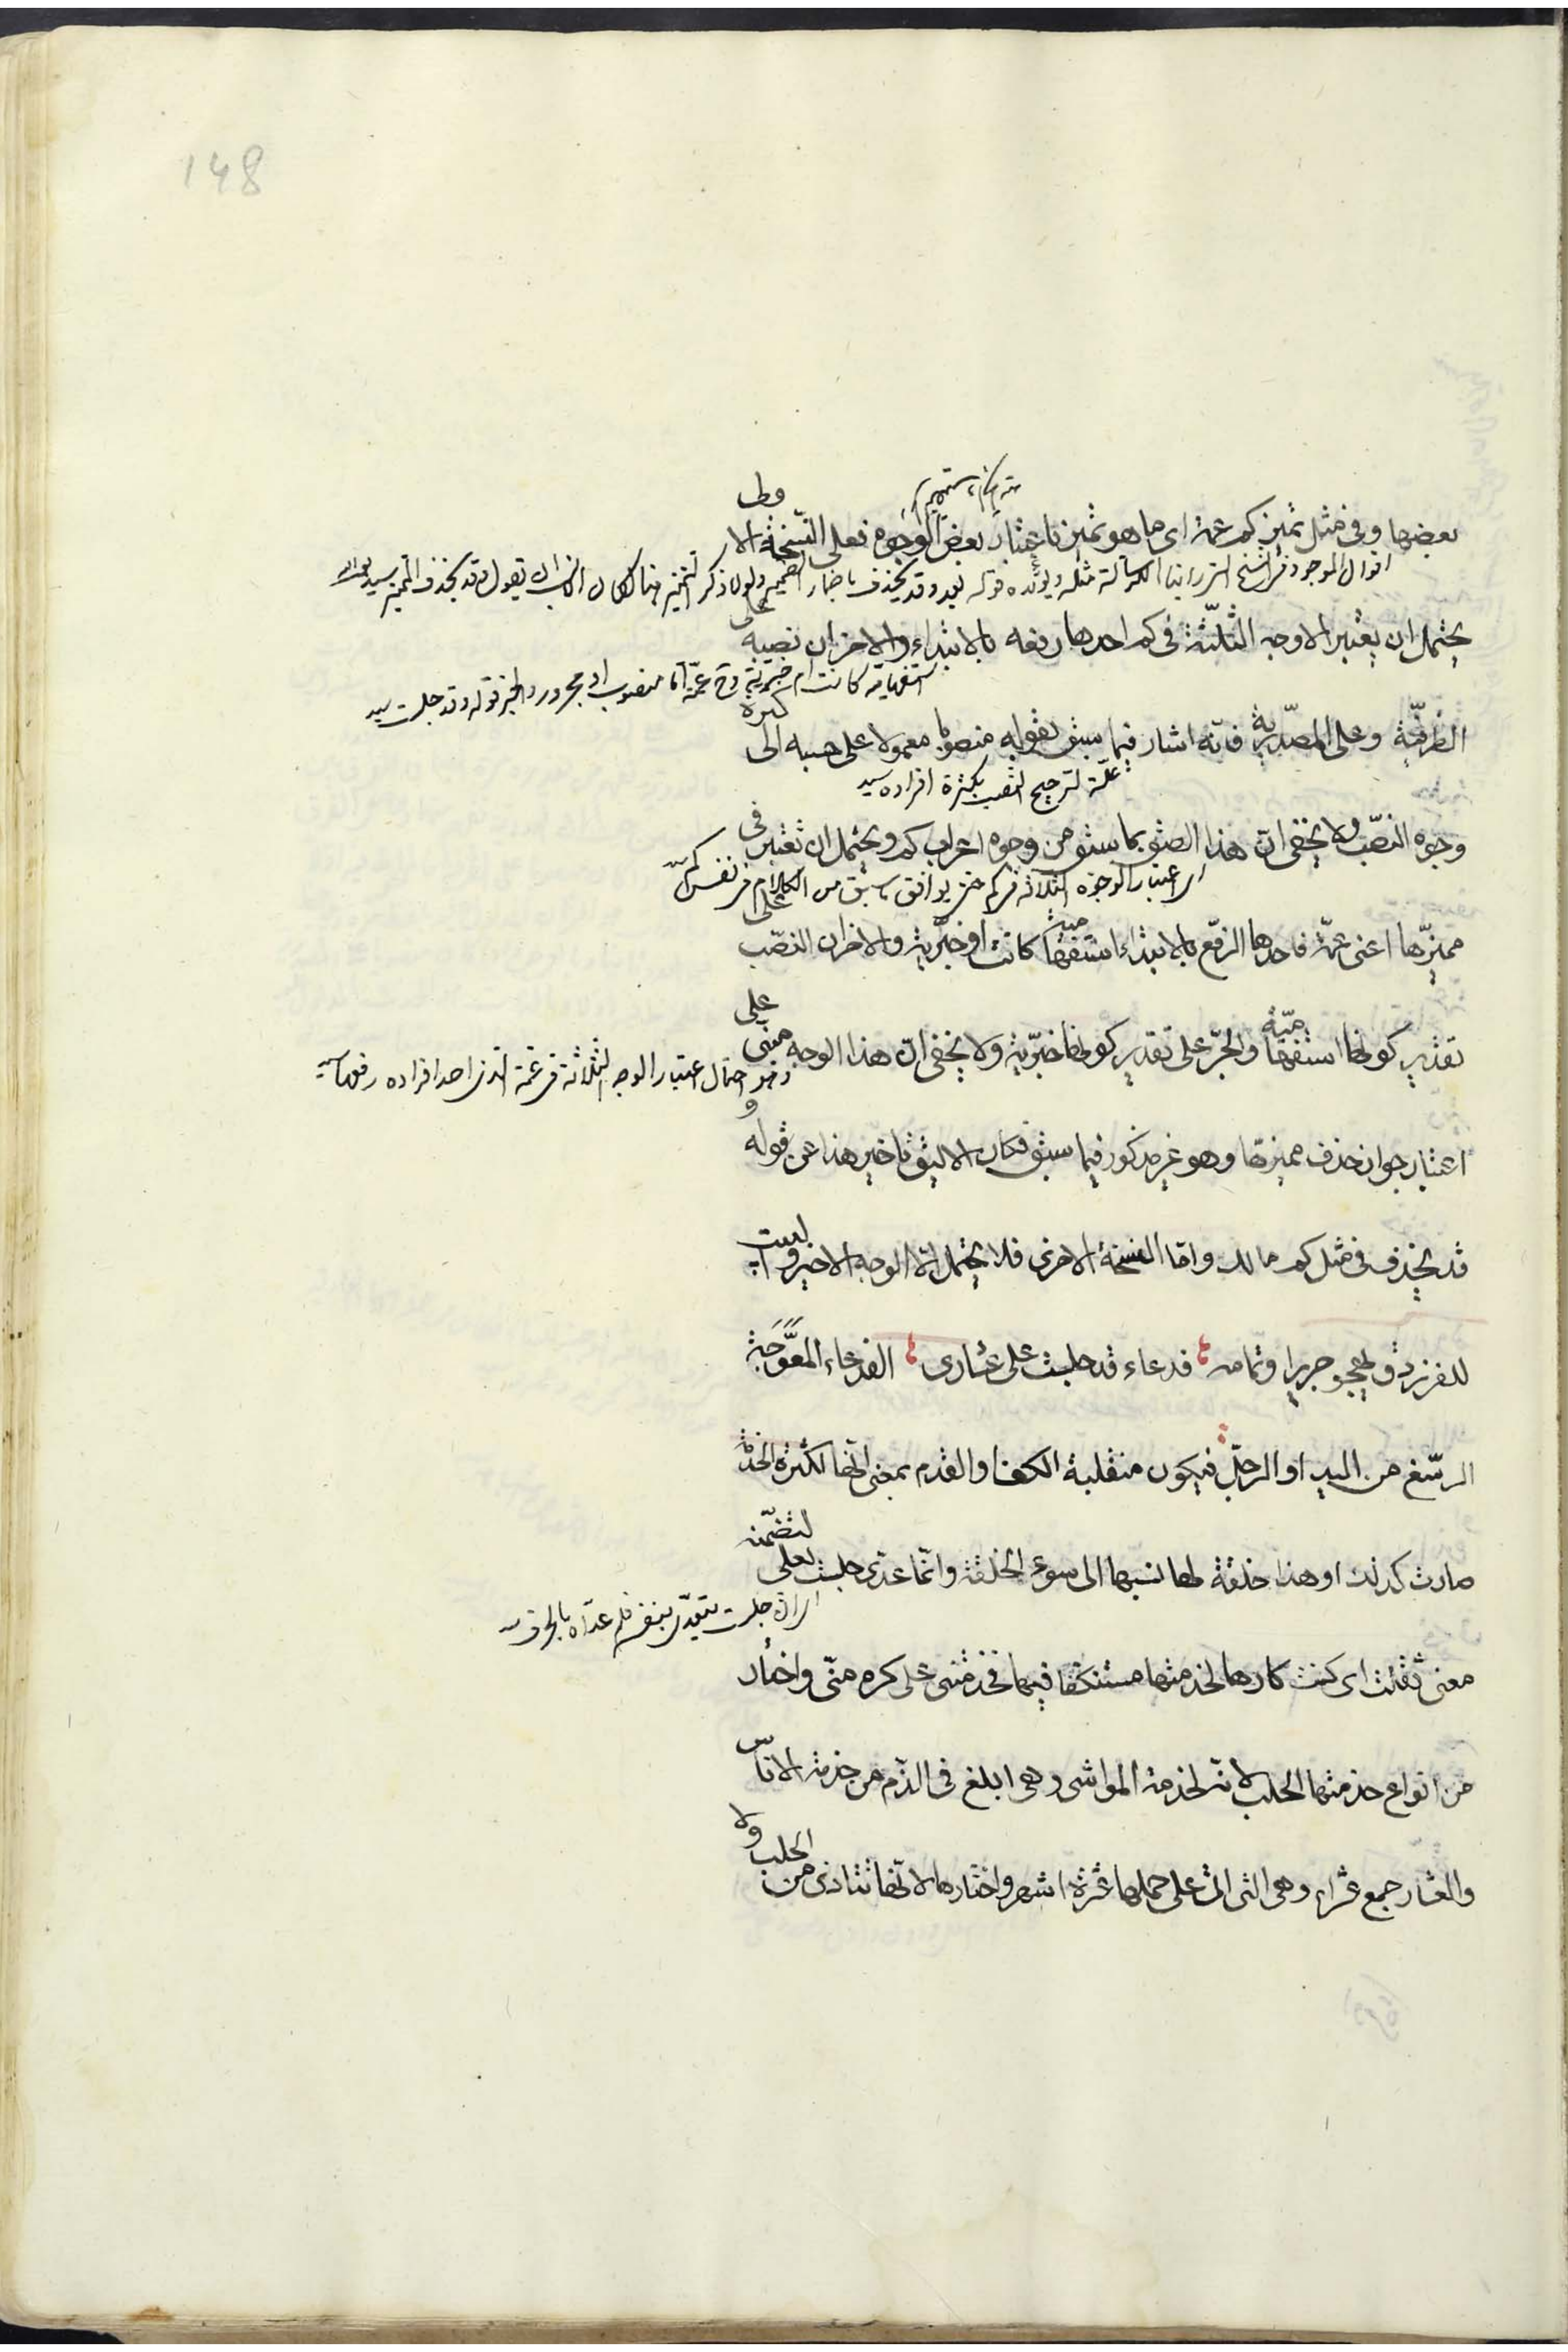 148
بعضها وفى مثل تميز كم عمة اى ما هو تميز باعتبار بعض الوجوه فعلى النسخة الاولى
اقول الموجود فى النسخ التى رأينا مثله ويؤيده قوله بعد وقد يحذف
يحتمل ان يعتبر الاوجه الثلثة فى كم احدها رفعه بالابتداء والاخران نصبه على
استفهامية كانت ام خبرية وح عمة اما منصوب او مجرور والخبر قوله قد حلبت سيد
الظرفية وعلى المصدرية فانه اشار فيما سبق بقوله منصوبا معمولا على حسبه الى كثرة
علة لترجيح النصب بكثرة افراده سيد
وجوه النصب ولا يخفى ان هذا الصق بما سبق من وجوه اعراب كم ويحتمل ان تعتبر فى
اى اعتبار الوجوه الثلاثة فى كم حتى يوافق ما سبق من الكلام فى نفس كم
مميزها اعنى عمة فاحدها الرفع بالابتداء استفهامية كانت او خبرية والاخران النصب على
تقدير كونها استفهامية والجر على تقدير كونها خبرية ولا يخفى ان هذا الوجه مبنى على
وهو احتمال اعتبار الوجه الثلاثة فى عمة الذى احد افراده رفعها
اعتبار جواز حذف مميزها وهو غير مذكور فيما سبق فكان الاليق تاخير هذا عن قوله و
قد يحذف فى مثل كم مالك واما النسخة الاخرى فلا يحتمل الا الوجه الاخير والبيت
للفرزدق يهجو جريرا وتمامه فدعاء قد حلبت على عشارى الفدعاء المعوجة
الرسغ من اليد او الرجل فيكون منقلبة الكف او القدم بمعنى انها لكثرة الخدمة
صارت كذلك او هذا خلقة لها نسبها الى سوء الخلقة وانما عدى حلبت بعلى لتضمنه
اى ان حلبت يتعدى بنفسه فلم عداه بالحرف
معنى ثقلت اى كنت كارها لخدمتها مستنكفا فيها فخدمتنى على كره منى واختار
من انواع خدمتها الحلب لانه لخدمة المواشى وهى ابلغ فى الذم من خدمة الاناس
والعشار جمع عشراء وهى التى اتى على حملها عشرة اشهر واختارها لانها تتاذى من الحلب ولا